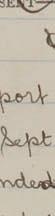 SENT
port
Sept
nded